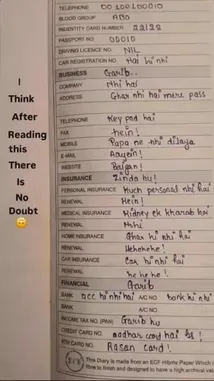 TELEPHONE 0010010001 0
BLOOD GROUP ABO
INDENTITY CARD NUMBER 22/22
PASSPORT NO. 00010
DRIVING LICENCE NO. NIL
CAR REGISTRATION NO. Hai hi nhi
BUSINESS Garib..
COMPANY Nhi hai
ADDRESS Ghar nhi hai mere pass
TELEPHONE Key pad hai
FAX hein!
MOBILE Papa ne nhi dilaya
E-MAIL Aayein!
WEBSITE Baigan!
INSURANCE Zinda hu!
PERSONAL INSURANCE Kuch personal nhi hai
RENEWAL Hein!
MEDICAL INSURANCE Kidney ek kharab hai
RENEWAL Nahi
HOME INSURANCE Ghar hi nhi hai
RENEWAL Hehehehe!
CAR INSURANCE Car hi nhi hai
RENEWAL he he he!
FINANCIAL Garib
BANK acc hi nhi hai A/C NO. bank hi nhi
BANK A/C NO.
INCOME TAX NO. (PAN) Garib hu
CREDIT CARD NO. aadhar card hai
ATM CARD NO. Rasan card!
This Diary is made from an ECF
I
Think
After
Reading
this
There
Is
No
Doubt